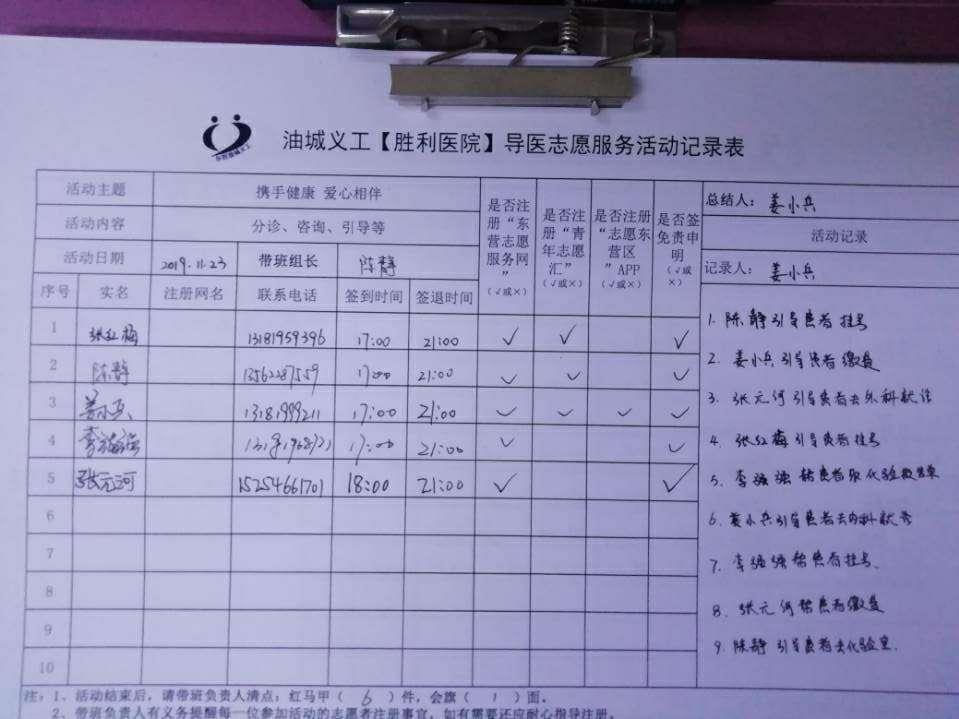 东营油城义工
油城义工【胜利医院】导医志愿服务活动记录表
活动主题 携手健康 爱心相伴
活动内容 分诊、咨询、引导等
活动日期 2019.11.23 带班组长 陈静
序号 实名 注册网名 联系电话 签到时间 签退时间
是否注册“东营志愿服务网”（√或×）
是否注册“青年志愿汇”（√或×）
是否注册“志愿东营区”APP（√或×）
是否签免责申明（√或×）
总结人：姜小兵
活动记录
记录人：姜小兵
1 张红梅 13181959396 17:00 21:00 √ √ √
2 陈静 13562287559 17:00 21:00 √ √ √
3 姜小兵 13181999211 17:00 21:00 √ √ √ √
4 李强强 17:00 21:00 √ √
5 张元河 15254661701 18:00 21:00 √ √
6
7
8
9
10
1. 陈静引导患者挂号
2. 姜小兵引导患者缴费
3. 张元河引导患者去外科就诊
4. 张红梅引导患者挂号
5. 李强强帮患者取化验报告单
6. 姜小兵引导患者去内科就诊
7. 李强强帮患者挂号.
8. 张元河帮患者缴费
9. 陈静引导患者去化验室.
注：1、活动结束后，请带班负责人清点：红马甲（ 6 ）件，会旗（ 1 ）面。
2、带班负责人有义务提醒每一位参加活动的志愿者注册事宜，如有需要还应耐心指导注册。